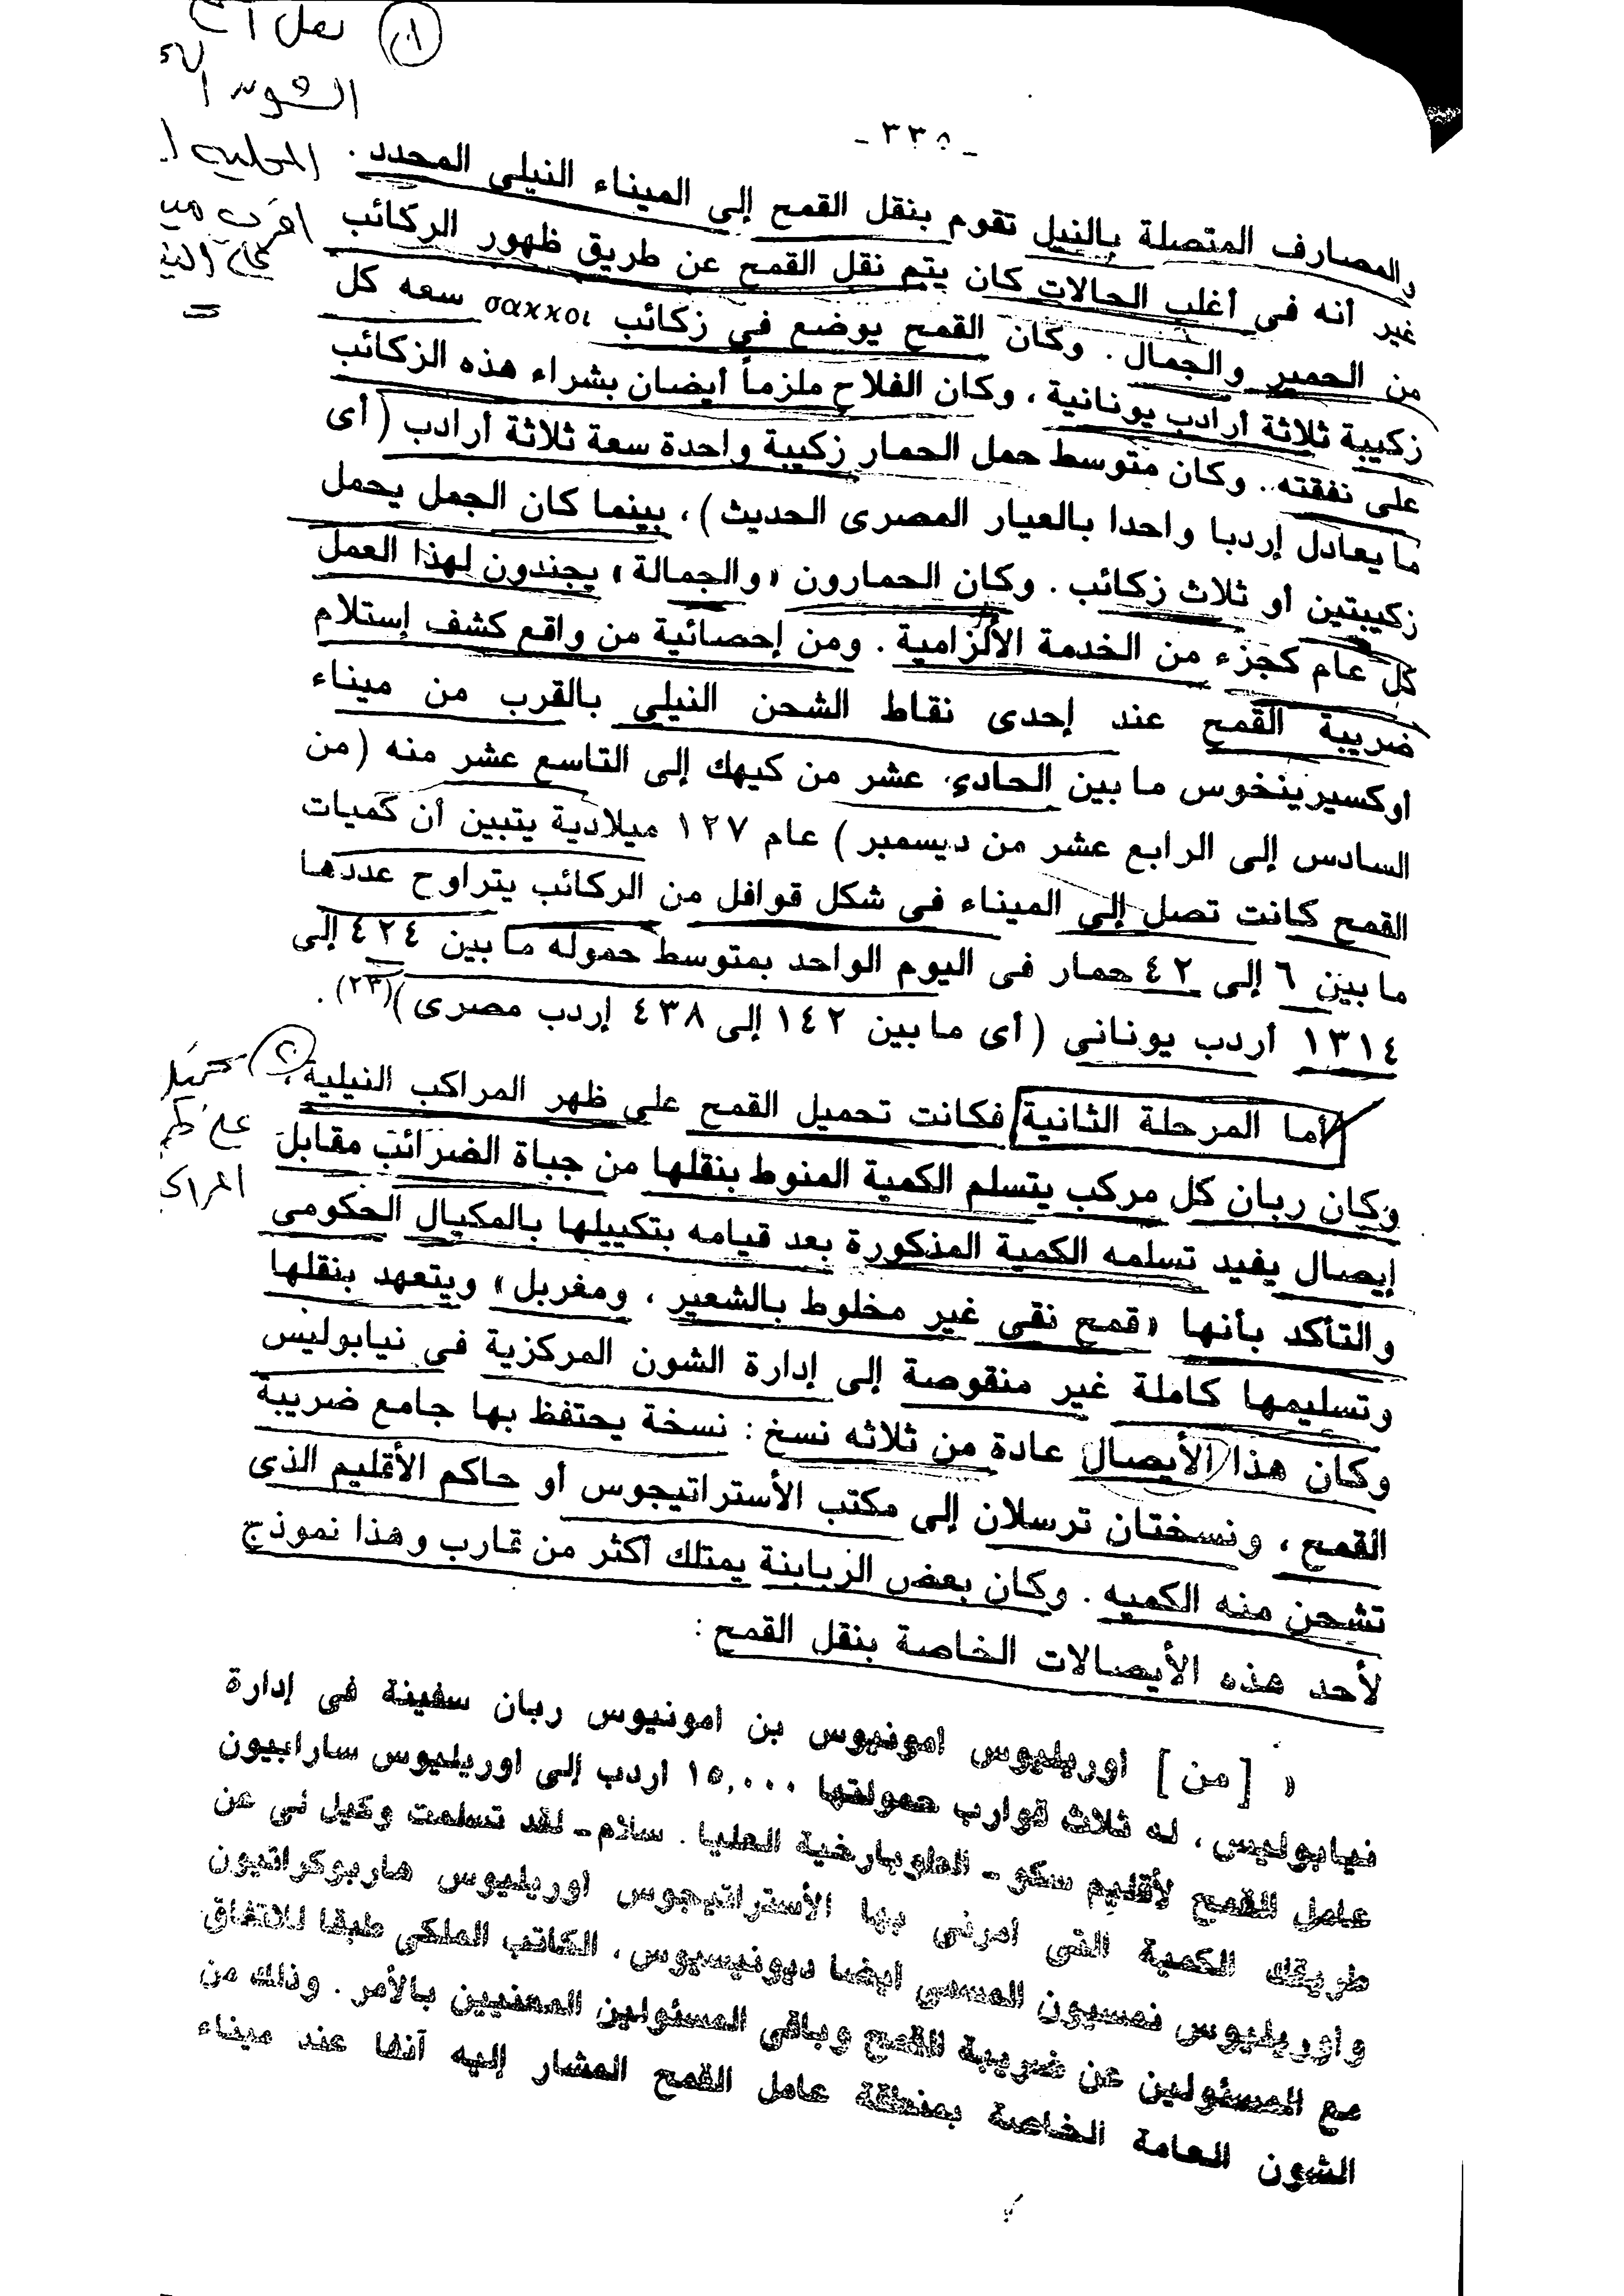 - ٣٣٥ -
والمصارف المتصلة بالنيل تقوم بنقل القمح إلى الميناء النيلى المحدد .
غير أنه فى أغلب الحالات كان يتم نقل القمح عن طريق ظهور الركائب
من الحمير والجمال . وكان القمح يوضع في زكائب σακκοι سعه كل
زكيبة ثلاثة أرادب يونانية ، وكان الفلاح ملزماً أيضان بشراء هذه الزكائب
على نفقته . وكان متوسط حمل الحمار زكيبة واحدة سعة ثلاثة أرادب ( أى
ما يعادل إردبا واحدا بالعيار المصرى الحديث ) ، بينما كان الجمل يحمل
زكيبتين أو ثلاث زكائب . وكان الحمارون «والجمالة» يجندون لهذا العمل
كل عام كجزء من الخدمة الألزامية . ومن إحصائية من واقع كشف إستلام
ضريبة القمح عند إحدى نقاط الشحن النيلي بالقرب من ميناء
أوكسيرينخوس ما بين الحادى عشر من كيهك إلى التاسع عشر منه (من
السادس إلى الرابع عشر من ديسمبر ) عام ١٢٧ ميلادية يتبين أن كميات
القمح كانت تصل إلى الميناء فى شكل قوافل من الركائب يتراوح عددها
ما بين ٦ إلى ٤٢ حمار فى اليوم الواحد بمتوسط حموله ما بين ٤٢٤ إلى
١٣١٤ أردب يونانى ( أى ما بين ١٤٢ إلى ٤٣٨ إردب مصرى )(٢٣) .
أما المرحلة الثانية فكانت تحميل القمح على ظهر المراكب النيلية ،
وكان ربان كل مركب يتسلم الكمية المنوط بنقلها من جباة الضرائب مقابل
إيصال يفيد تسلمه الكمية المذكورة بعد قيامه بتكييلها بالمكيال الحكومى
والتأكد بأنها «قمح نقى غير مخلوط بالشعير ، ومغربل» ويتعهد بنقلها
وتسليمها كاملة غير منقوصة إلى إدارة الشون المركزية فى نيابوليس
وكان هذا الأيصال عادة من ثلاثه نسخ : نسخة يحتفظ بها جامع ضريبة
القمح ، ونسختان ترسلان إلى مكتب الأستراتيجوس أو حاكم الأقليم الذى
تشحن منه الكميه . وكان بعض الربابنة يمتلك أكثر من قارب وهذا نموذج
لأحد هذه الأيصالات الخاصة بنقل القمح :
« [ من ] اوريليوس امونيوس بن امونيوس ربان سفينة فى إدارة
نيابوليس ، له ثلاث قوارب حمولتها ١٥,٠٠٠ اردب إلى اوريليوس سارابيون
عامل القمح لأقليم سكو - الطوبارخية العليا . سلام - لقد تسلمت وكيل لى عن
طريقك الكمية التى امرنى بها الأستراتيجوس اوريليوس هاربوكراتيون
واوريليوس نمسيون المسمى ايضا ديونيسيوس ، الكاتب الملكى طبقا للاتفاق
مع المسئولين عن ضريبة القمح وباقى المسئولين المعنيين بالأمر . وذلك من
الشون العامة الخاصة بمنطقة عامل القمح المشار إليه آنفا عند ميناء